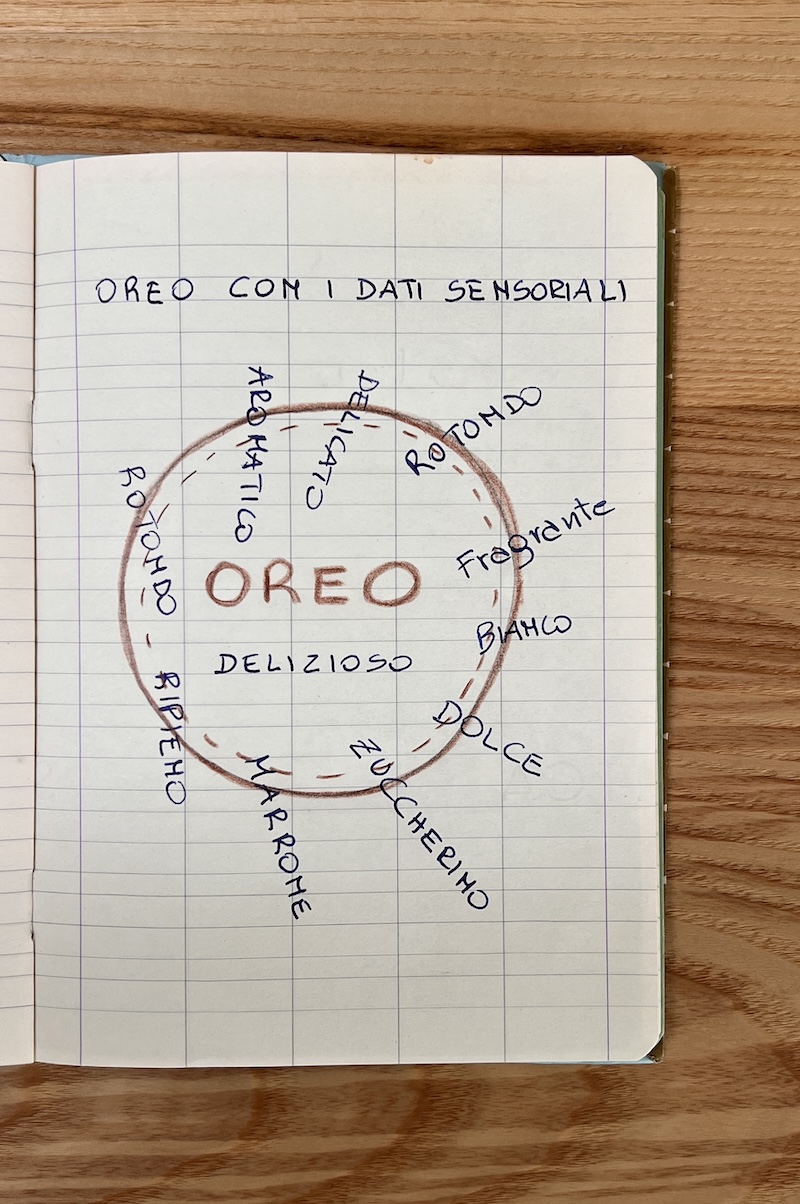 OREO CON I DATI SENSORIALI
AROMATICO
DELICATO
ROTONDO
Fragrante
BIANCO
DOLCE
ZUCCHERINO
MARRONE
RIPIENO
ROTONDO
OREO
DELIZIOSO